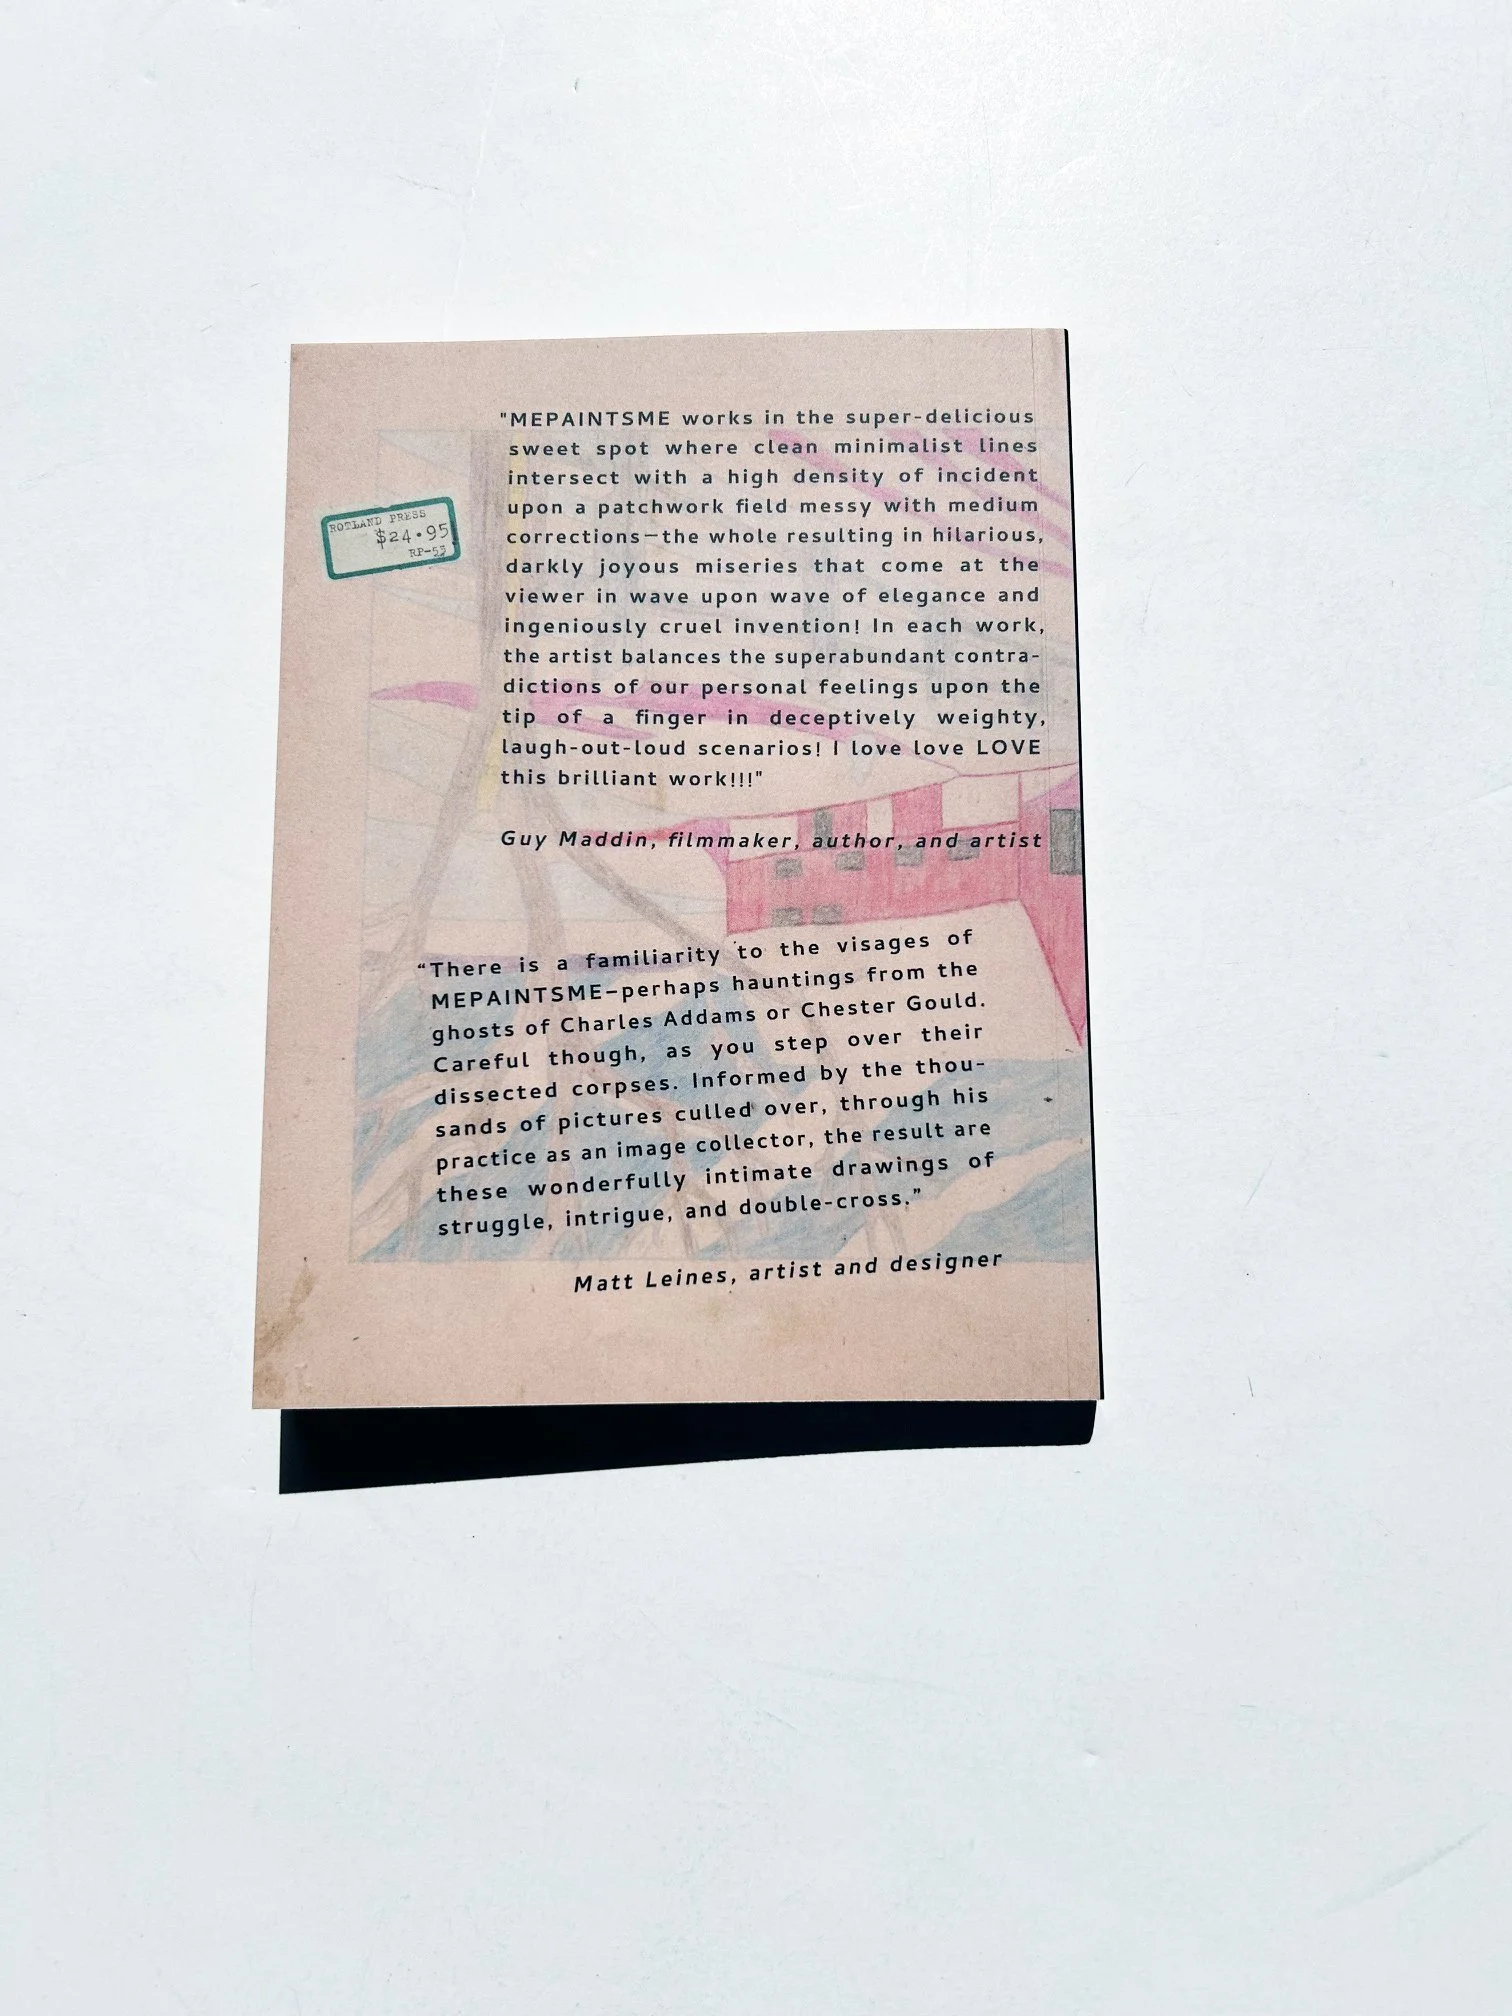 "MEPAINTSME works in the super-delicious
sweet spot where clean minimalist lines
intersect with a high density of incident
upon a patchwork field messy with medium
corrections—the whole resulting in hilarious,
darkly joyous miseries that come at the
viewer in wave upon wave of elegance and
ingeniously cruel invention! In each work,
the artist balances the superabundant contra-
dictions of our personal feelings upon the
tip of a finger in deceptively weighty,
laugh-out-loud scenarios! I love love LOVE
this brilliant work!!!"
Guy Maddin, filmmaker, author, and artist
ROTLAND PRESS
$24.95
RP-53
“There is a familiarity to the visages of
MEPAINTSME–perhaps hauntings from the
ghosts of Charles Addams or Chester Gould.
Careful though, as you step over their
dissected corpses. Informed by the thou-
sands of pictures culled over, through his
practice as an image collector, the result are
these wonderfully intimate drawings of
struggle, intrigue, and double-cross.”
Matt Leines, artist and designer